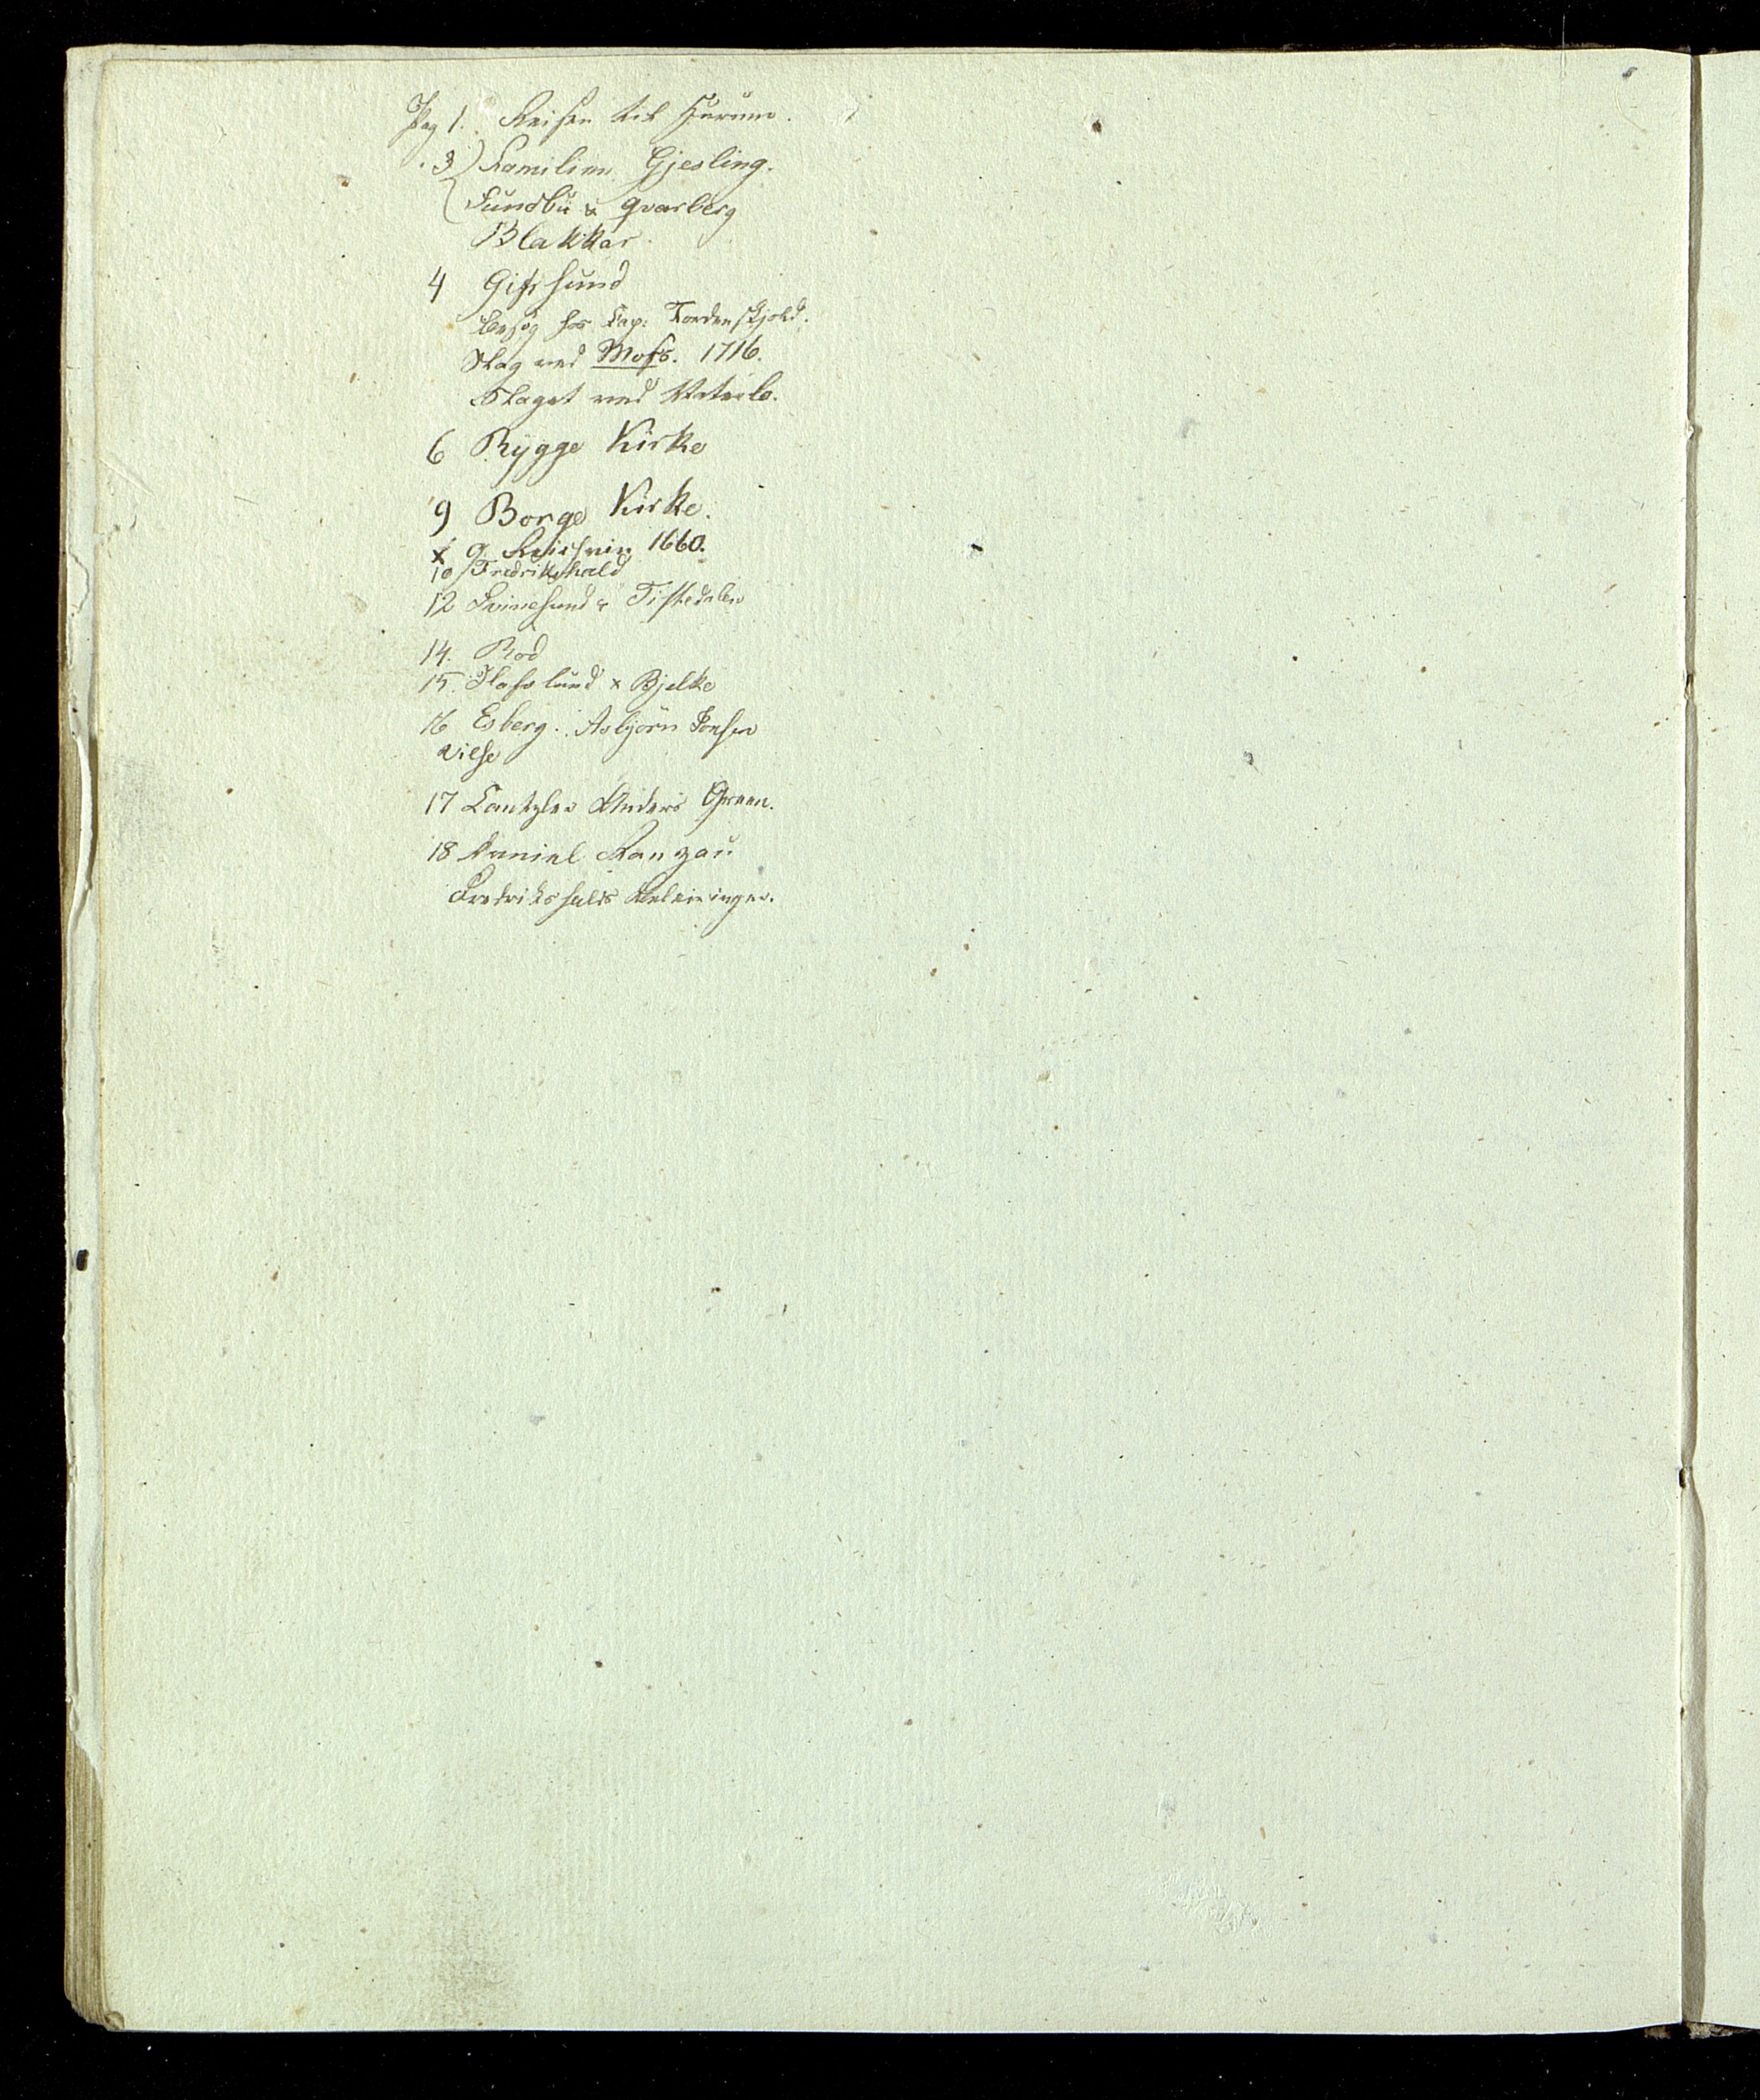 Pag 1. Reisen til Hurum.
3) Familien Gjesling.
Sundbu & Qvarberg
Blakkar.
4 Gifsund
Besøg hos Cap: Tordenskjold.
Slag ved Mofs. 1716.
Slaget ved Vaterlo.
6 Rygge Kirke
9 Borge Kirke.
x 9 Reichwin 1660.
10 Fredrikshald
12 Svinesund & Tistedalen
14. Röd
15. Hafslund & Bjelke
16 Esberg. Asbjörn Jonsen
Wilse
17 Cantzler Anders Green.
18 Daniel Ranzau
Fredrikshalds Beleiringer.